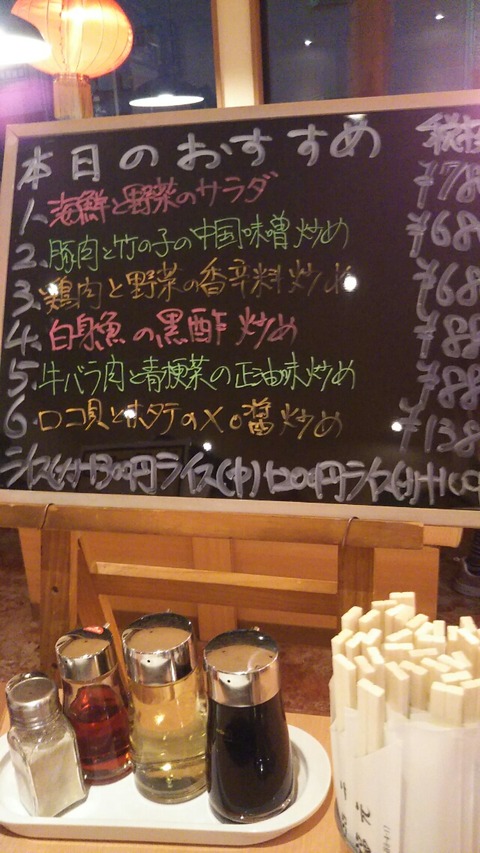 本日のおすすめ 税抜
1. 海鮮と野菜のサラダ ¥78
2. 豚肉と竹の子の中国味噌炒め ¥68
3. 鶏肉と野菜の香辛料炒め ¥68
4. 白身魚の黒酢炒め ¥88
5. 牛バラ肉と青梗菜の正油味炒め ¥88
6. ロコ貝とホタテのXO醤炒め ¥138
ライス(大)+300円 ライス(中)+200円 ライス(小)+100